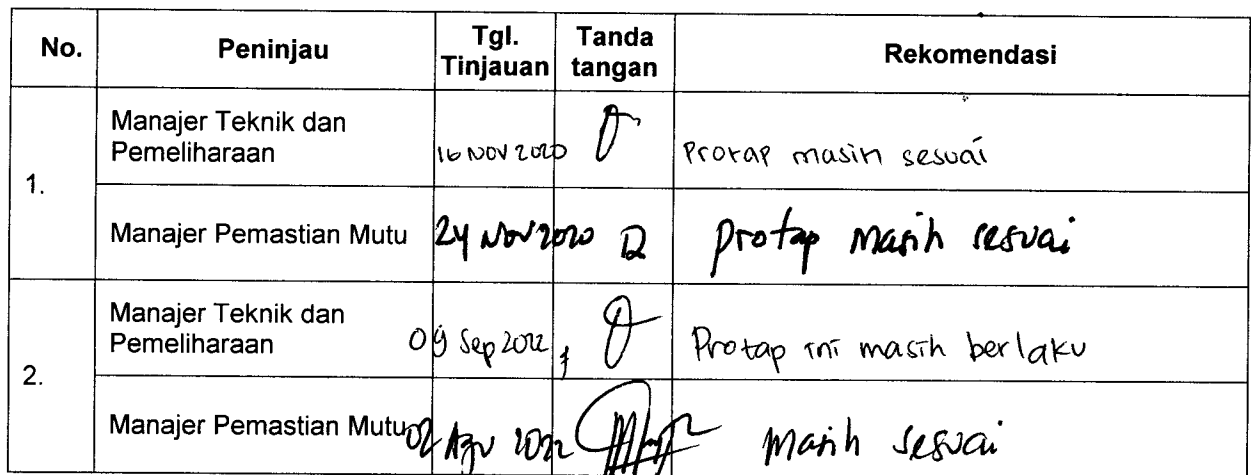 No. Peninjau Tgl. Tinjauan Tanda tangan Rekomendasi
1. Manajer Teknik dan Pemeliharaan 16 NOV 2020 Protap masih sesuai
Manajer Pemastian Mutu 24 Nov 2020 protap masih sesuai
2. Manajer Teknik dan Pemeliharaan 09 Sep 2022 Protap ini masih berlaku
Manajer Pemastian Mutu 02 Agu 2022 masih sesuai